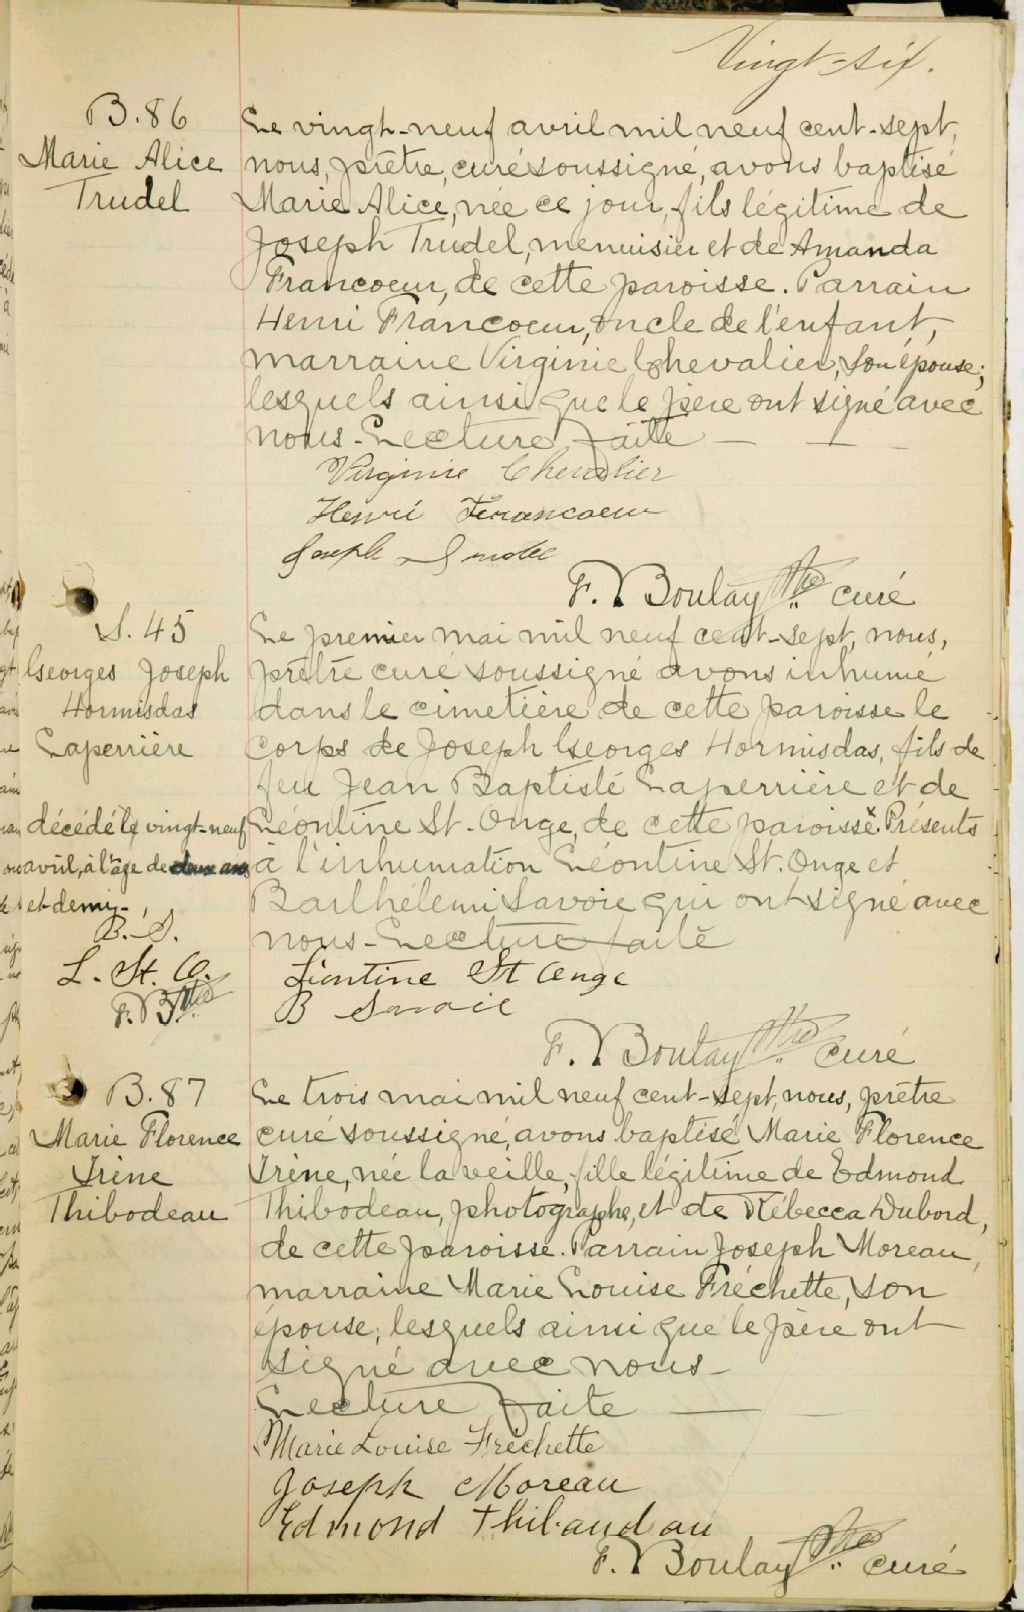 Vingt-six.
B. 86
Marie Alice
Trudel
Le vingt-neuf avril mil neuf cent-sept,
nous, prêtre, curé soussigné, avons baptisé
Marie Alice, née ce jour, fils légitime de
Joseph Trudel, menuisier et de Amanda
Francoeur, de cette paroisse. Parrain
Henri Francoeur, oncle de l'enfant,
marraine Virginie Chevalier, son épouse;
lesquels ainsi que le père ont signé avec
nous. Lecture faite
Virginie Chevalier
Henri Francoeur
Joseph Trudel
F. Boulay Ptre curé
S. 45
Georges Joseph
Hormisdas
Laperrière
décédé le vingt-neuf
avril, à l'âge de deux ans
et demi.
B. S.
L. St. O.
F. B. Ptre
Le premier mai mil neuf cent-sept, nous,
prêtre curé soussigné avons inhumé
dans le cimetière de cette paroisse le
corps de Joseph Georges Hormisdas, fils de
feu Jean Baptiste Laperrière et de
Léontine St. Onge, de cette paroisse. Présents
à l'inhumation Léontine St. Onge et
Barthélemi Savoie qui ont signé avec
nous. Lecture faite
Liontine St Onge
B Savoie
F. Boulay Ptre curé
B. 87
Marie Florence
Irène
Thibodeau
Le trois mai mil neuf cent-sept, nous, prêtre
curé soussigné, avons baptisé Marie Florence
Irène, née la veille, fille légitime de Edmond
Thibodeau, photographe, et de Rébecca Dubord,
de cette paroisse. Parrain Joseph Moreau,
marraine Marie Louise Fréchette, son
épouse, lesquels ainsi que le père ont
signé avec nous.
Lecture faite
Marie Louise Fréchette
Joseph Moreau
Edmond Thibaudau
F. Boulay Ptre curé